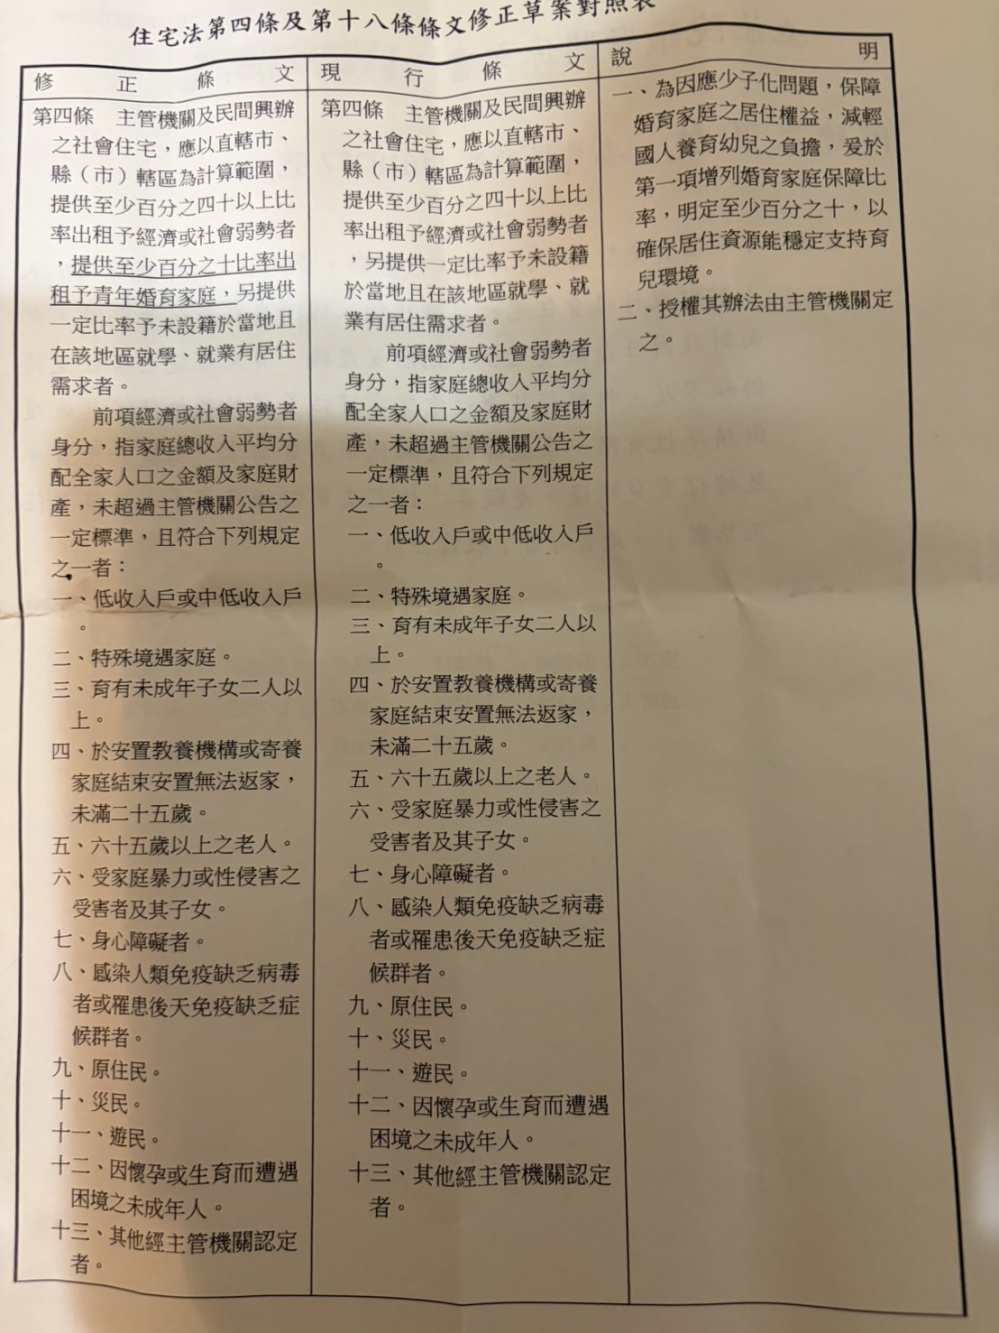 住宅法第四條及第十八條條文修正草案對照表
修正條文
第四條　主管機關及民間興辦
之社會住宅，應以直轄市、
縣（市）轄區為計算範圍，
提供至少百分之四十以上比
率出租予經濟或社會弱勢者
，提供至少百分之十比率出
租予青年婚育家庭，另提供
一定比率予未設籍於當地且
在該地區就學、就業有居住
需求者。
前項經濟或社會弱勢者
身分，指家庭總收入平均分
配全家人口之金額及家庭財
產，未超過主管機關公告之
一定標準，且符合下列規定
之一者：
一、低收入戶或中低收入戶
。
二、特殊境遇家庭。
三、育有未成年子女二人以
上。
四、於安置教養機構或寄養
家庭結束安置無法返家，
未滿二十五歲。
五、六十五歲以上之老人。
六、受家庭暴力或性侵害之
受害者及其子女。
七、身心障礙者。
八、感染人類免疫缺乏病毒
者或罹患後天免疫缺乏症
候群者。
九、原住民。
十、災民。
十一、遊民。
十二、因懷孕或生育而遭遇
困境之未成年人。
十三、其他經主管機關認定
者。
現行條文
第四條　主管機關及民間興辦
之社會住宅，應以直轄市、
縣（市）轄區為計算範圍，
提供至少百分之四十以上比
率出租予經濟或社會弱勢者
，另提供一定比率予未設籍
於當地且在該地區就學、就
業有居住需求者。
前項經濟或社會弱勢者
身分，指家庭總收入平均分
配全家人口之金額及家庭財
產，未超過主管機關公告之
一定標準，且符合下列規定
之一者：
一、低收入戶或中低收入戶
。
二、特殊境遇家庭。
三、育有未成年子女二人以
上。
四、於安置教養機構或寄養
家庭結束安置無法返家，
未滿二十五歲。
五、六十五歲以上之老人。
六、受家庭暴力或性侵害之
受害者及其子女。
七、身心障礙者。
八、感染人類免疫缺乏病毒
者或罹患後天免疫缺乏症
候群者。
九、原住民。
十、災民。
十一、遊民。
十二、因懷孕或生育而遭遇
困境之未成年人。
十三、其他經主管機關認定
者。
說明
一、為因應少子化問題，保障
婚育家庭之居住權益，減輕
國人養育幼兒之負擔，爰於
第一項增列婚育家庭保障比
率，明定至少百分之十，以
確保居住資源能穩定支持育
兒環境。
二、授權其辦法由主管機關定
之。